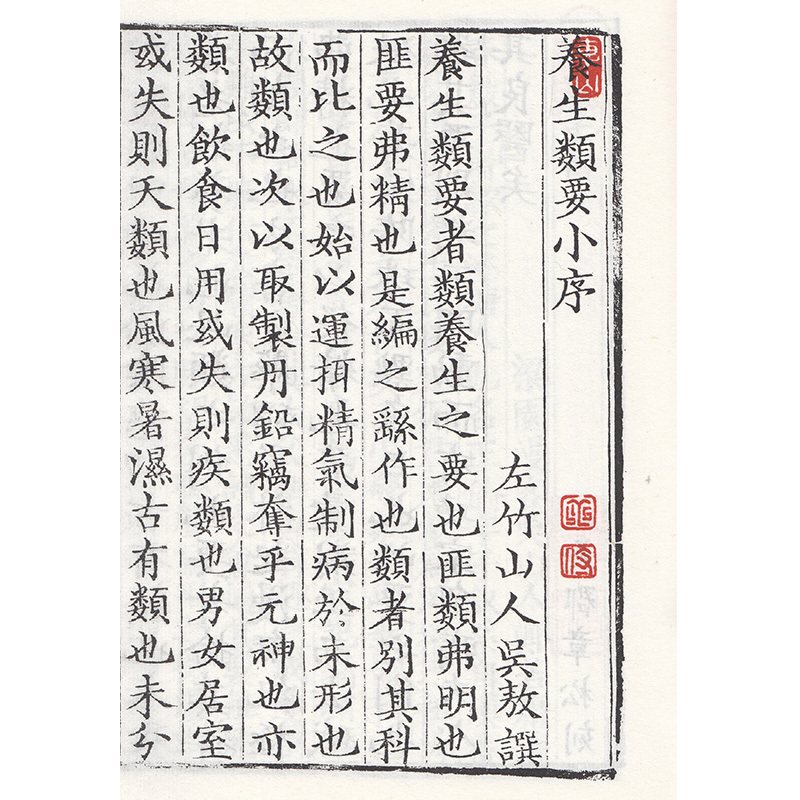 養生類要小序
左竹山人吳敖譔
養生類要者類養生之要也匪類弗明也
匪要弗精也是編之繇作也類者別其科
而比之也始以運拑精氣制病於未形也
故類也次以取製丹鉛竊奪乎元神也亦
類也飲食日用或失則疾類也男女居室
或失則夭類也風寒暑濕古有類也未分